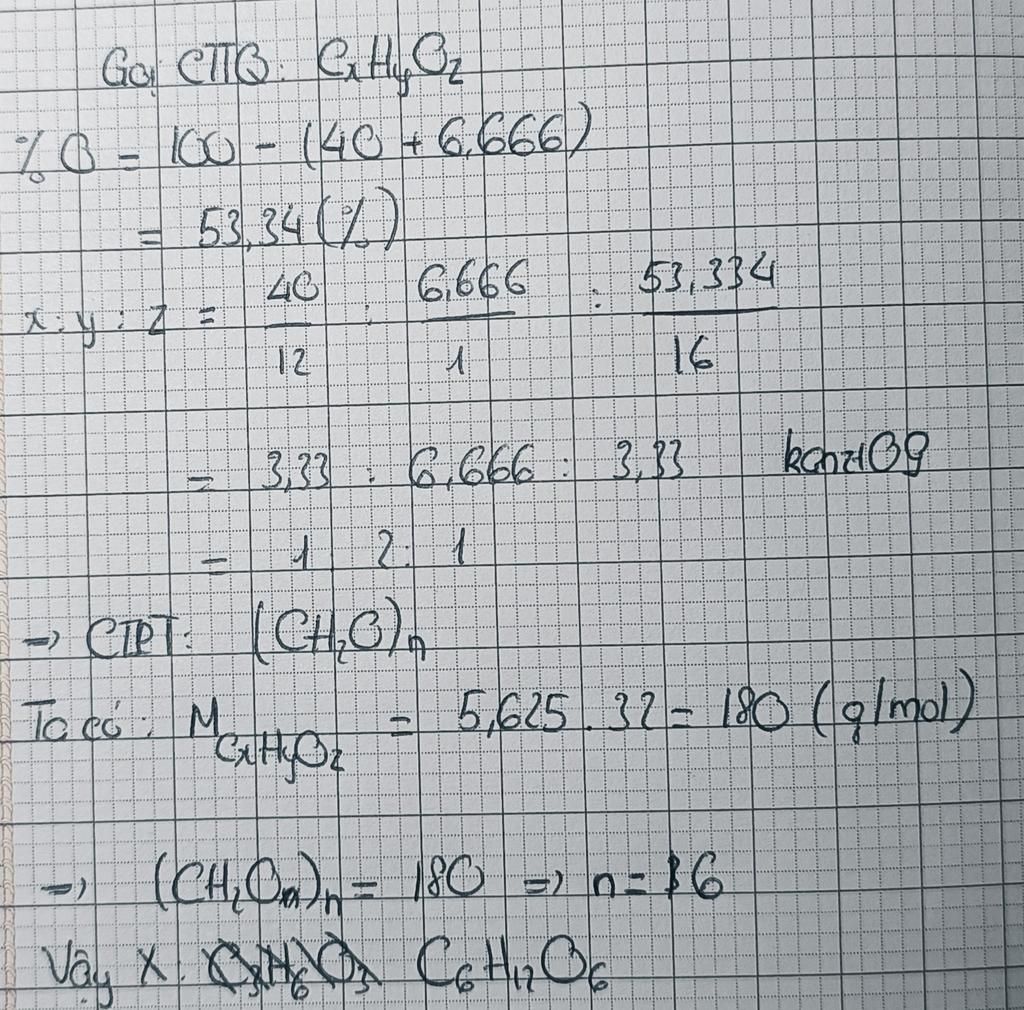 Gọi CTTQ: CxHyOz
%O = 100 - (40 + 6,666)
= 53,34 (%)
x : y : z = 40/12 : 6,666/1 : 53,334/16
= 3,33 : 6,666 : 3,33
= 1 2 : 1
→ CTPT: (CH₂O)n
Ta có: M CxHyOz = 5,625 . 32 = 180 (g/mol)
→ (CH₂O)n = 180 => n = 6
Vậy X: C₃H₆O₃ C₆H₁₂O₆